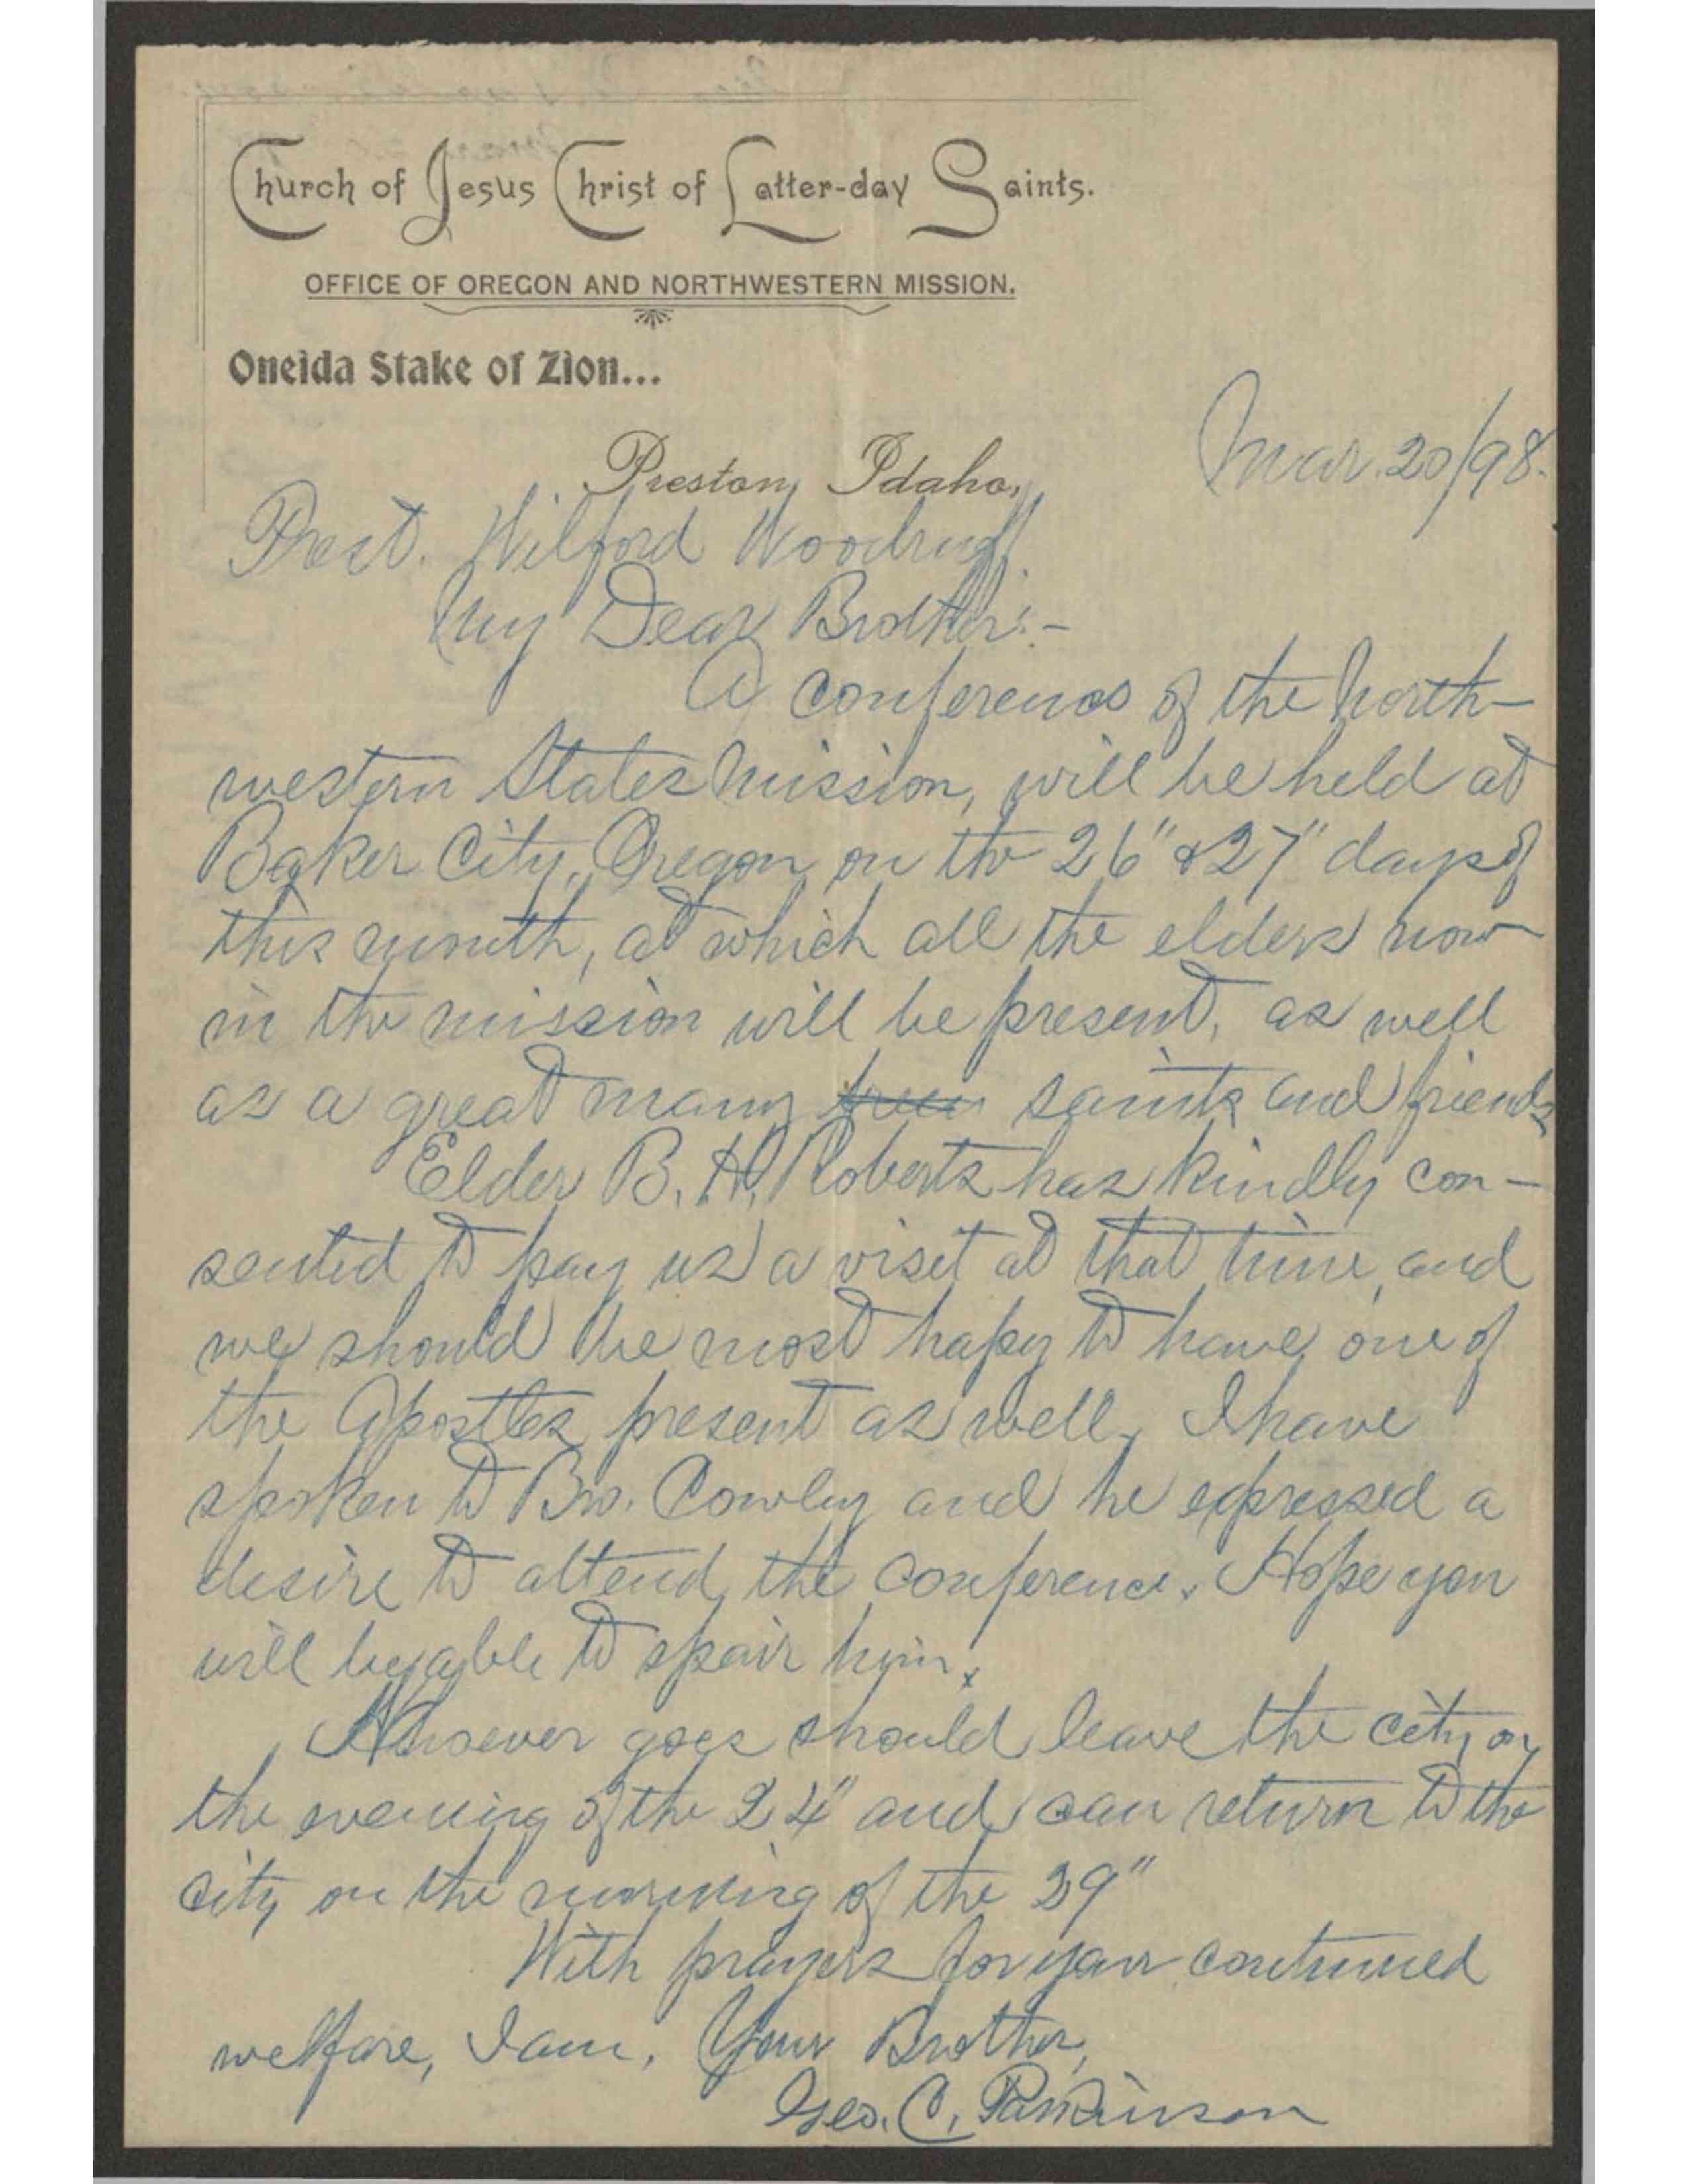 Church of Jesus Christ of Latter-day Saints.
OFFICE OF OREGON AND NORTHWESTERN MISSION.
Oneida Stake of Zion...
Preston, Idaho, Mar. 20/98.
Prest. Wilford Woodruff.
My Dear Brother:-
A conference of the North-
western States Mission, will be held at
Baker City, Oregon on the 26" & 27" days of
this month, at which all the elders now
in the mission will be present, as well
as a great many saints and friends
Elder B. H. Roberts has kindly con-
sented to pay us a visit at that time, and
we should be most hapy to have one of
the Apostles present as well. I have
spoken to Bro. Cowley and he expressed a
desire to attend the conference. Hope you
will be able to spair him.
Whoever goes should leave the city on
the evening of the 24" and can return to the
city on the morning of the 29"
With prayers for your continued
welfare, I am, Your Brother,
Geo. C. Parkinson